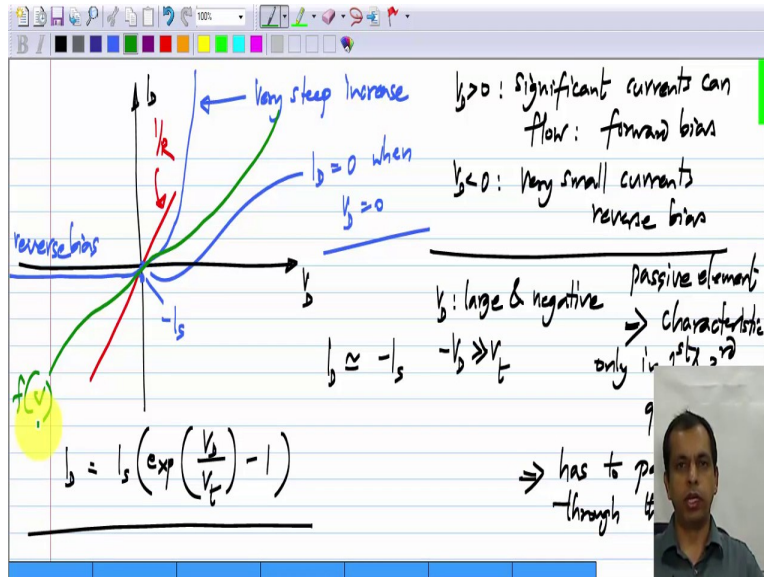 100%
B I
I_D
Very steep increase
1/R
I_D = 0 when
V_D = 0
reverse bias
V_D
-I_s
f(v)
I_D = I_s (exp (V_D / V_t) - 1)
V_D>0 : significant currents can
flow : forward bias
V_D<0 : Very small currents
reverse bias
V_D : large & negative
I_D ≃ -I_s -V_D ≫ V_t
passive element
⇒ characteristic
only in 1st & 3rd
⇒ has to
through